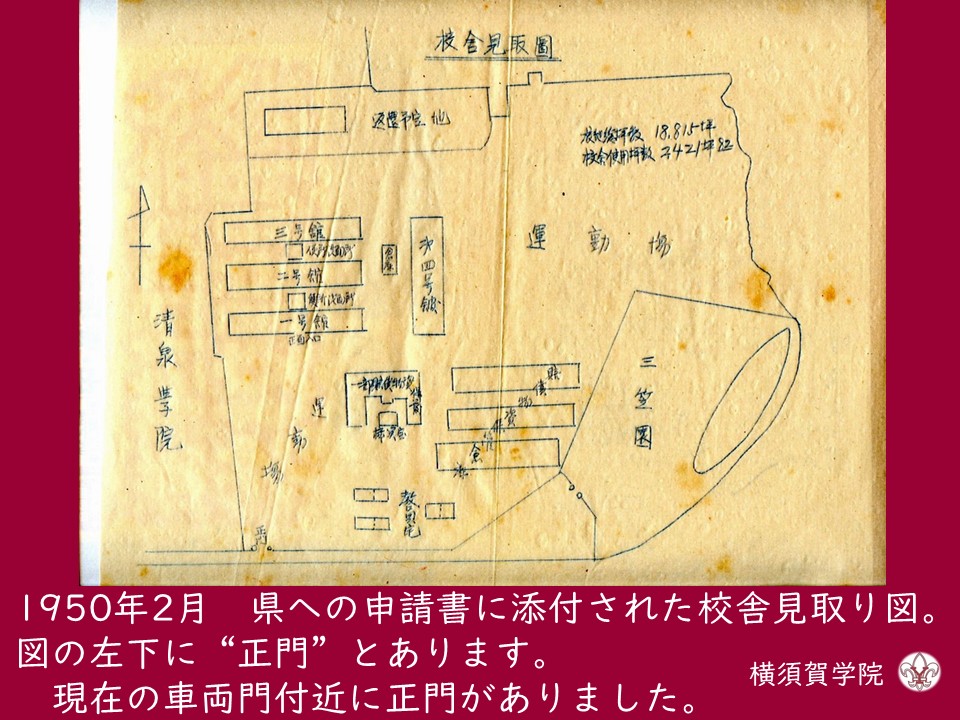 校舎見取圖
返還予定地
校地総坪数 18,815坪
校舎使用坪数 2421坪82
三号館
二号館
一号館
正面入口
倉庫
第四号館
運動場
清泉学院
三笠園
運動場
講演室
教員宅
正門
1950年2月 県への申請書に添付された校舎見取り図。
図の左下に“正門”とあります。
現在の車両門付近に正門がありました。
横須賀学院